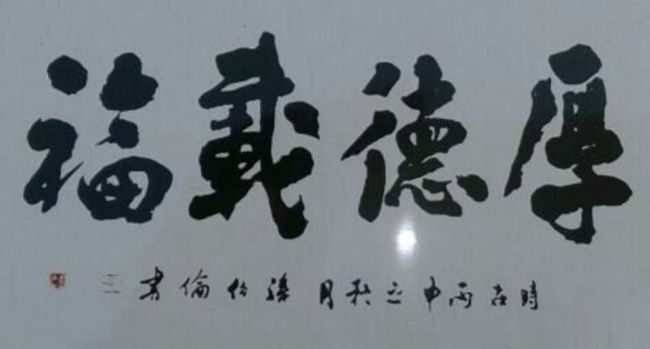 厚德載福
時在丙申之秋月伯倫書